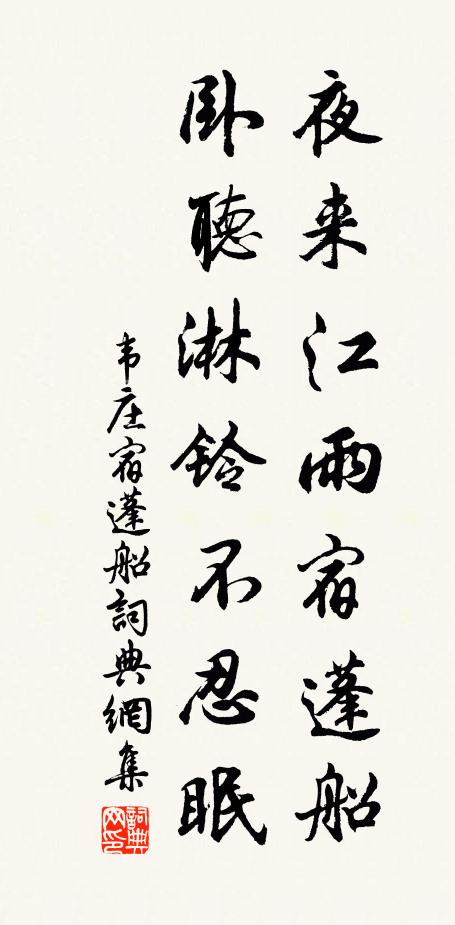 夜来江雨宿蓬船
卧聽淋鈴不忍眠
韦庄宿蓬船詞典網集
詞典網印